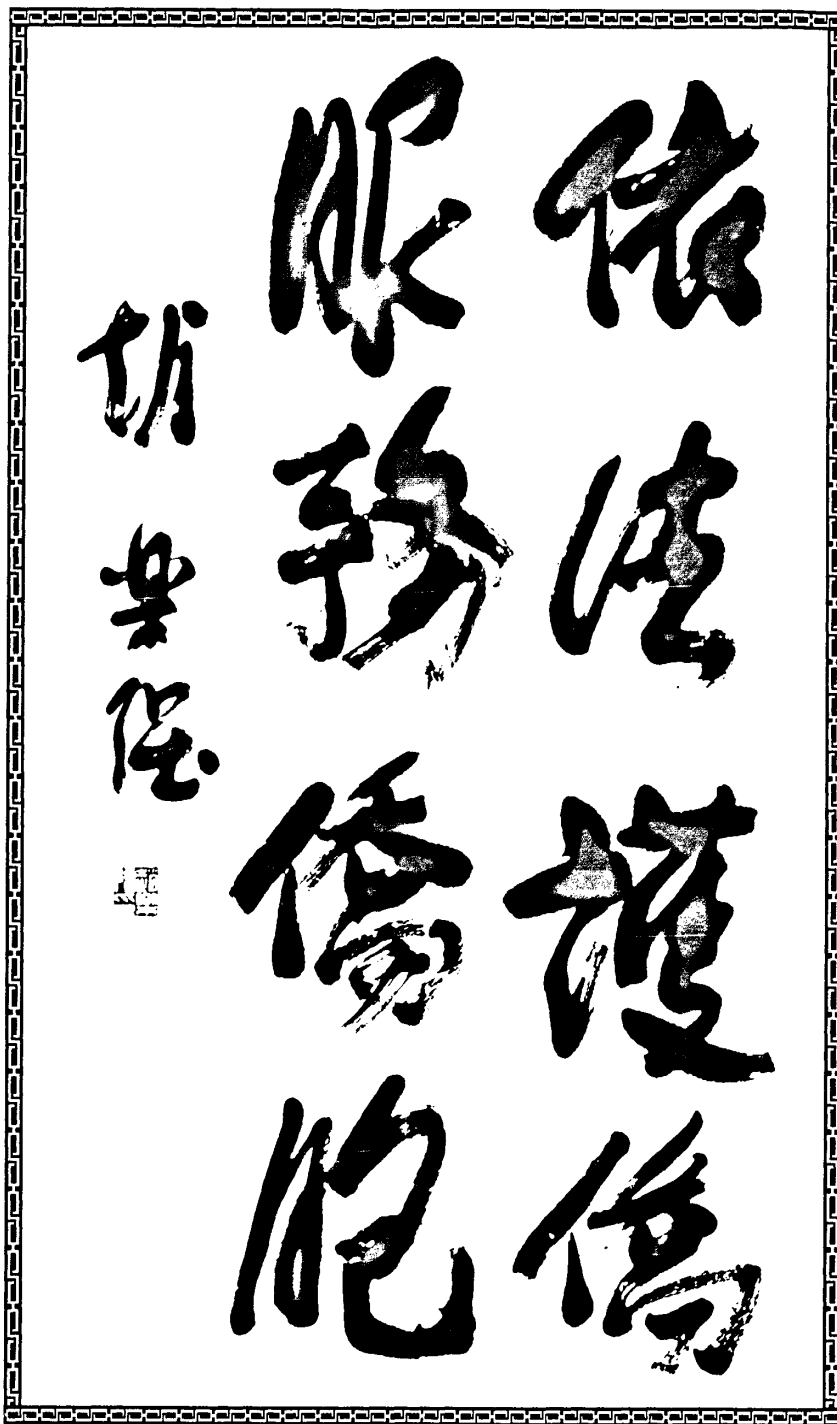 依法護僑
服務僑胞